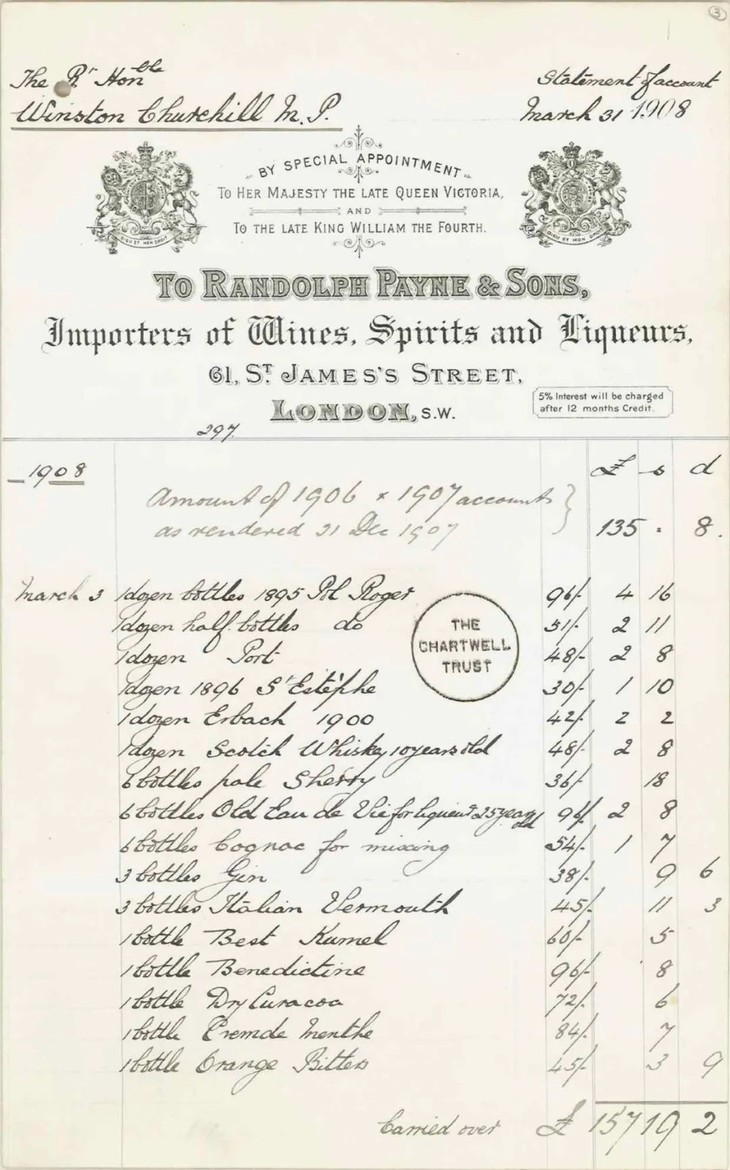 3
The Rt Honble
Winston Churchill M.P.
Statement of account
March 31 1908
BY SPECIAL APPOINTMENT
TO HER MAJESTY THE LATE QUEEN VICTORIA,
AND
TO THE LATE KING WILLIAM THE FOURTH.
DIEU ET MON DROIT
DIEU ET MON DROIT
TO RANDOLPH PAYNE & SONS,
Importers of Wines, Spirits and Liqueurs,
61, ST JAMES'S STREET,
LONDON, S.W.
5% Interest will be charged
after 12 months Credit.
297.
1908 £ s d
Amount of 1906 & 1907 accounts
as rendered 31 Dec 1907 } 135 - 8.
March 3 1 dozen bottles 1895 Pol Roger 96/- 4 16
1 dozen half bottles do 51/- 2 11
1 dozen Port 48/- 2 8
1 dozen 1896 St Estéphe 30/- 1 10
1 dozen Erbach 1900 42/- 2 2
1 dozen Scotch Whisky 10 years old 48/- 2 8
6 bottles pale Sherry 36/- 18
6 bottles Old Eau de Vie for liqueur 25 years old 96/- 2 8
6 bottles Cognac for mixing 54/- 1 7
3 bottles Gin 38/- 9 6
3 bottles Italian Vermouth 45/- 11 3
1 bottle Best Kumel 60/- 5
1 bottle Benedictine 96/- 8
1 bottle Dry Curacoa 72/- 6
1 bottle Cremde Menthe 84/- 7
1 bottle Orange Bitters 45/- 3 9
THE
CHARTWELL
TRUST
Carried over £ 157 19 2